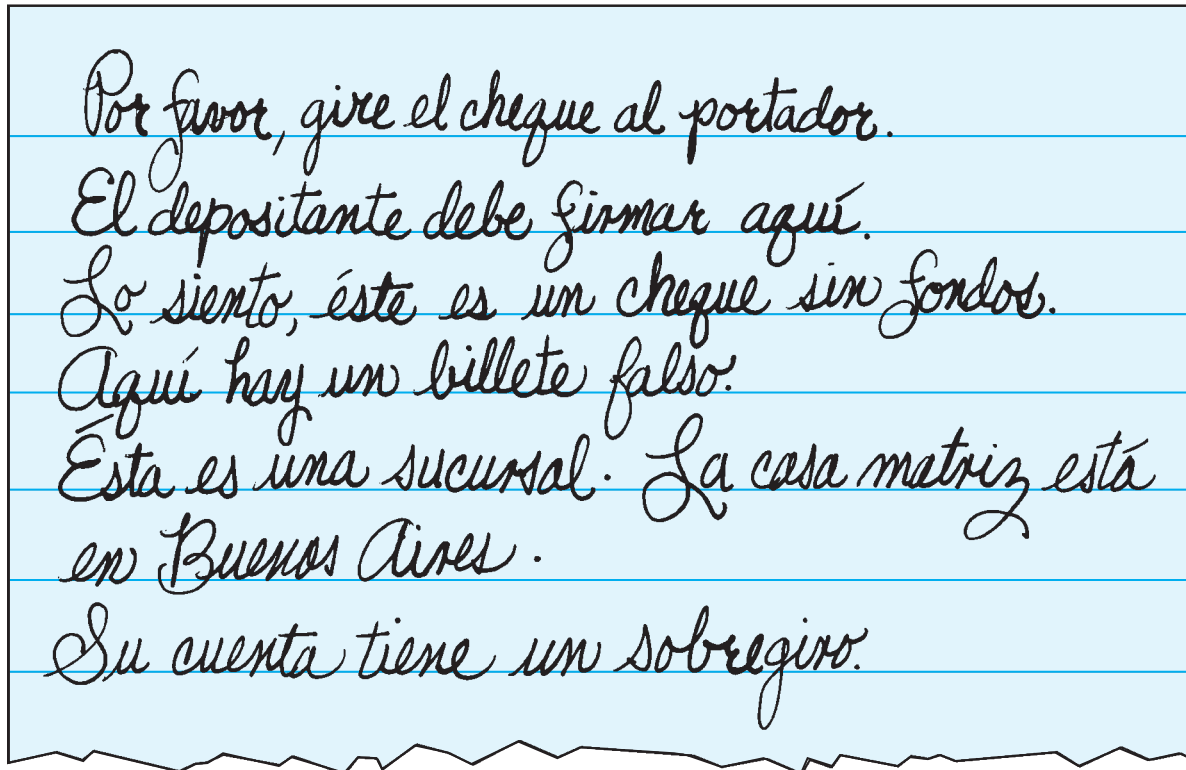 Por favor, gire el cheque al portador.
El depositante debe firmar aquí.
Lo siento, éste es un cheque sin fondos.
Aquí hay un billete falso.
Ésta es una sucursal. La casa matriz está
en Buenos Aires.
Su cuenta tiene un sobregiro.